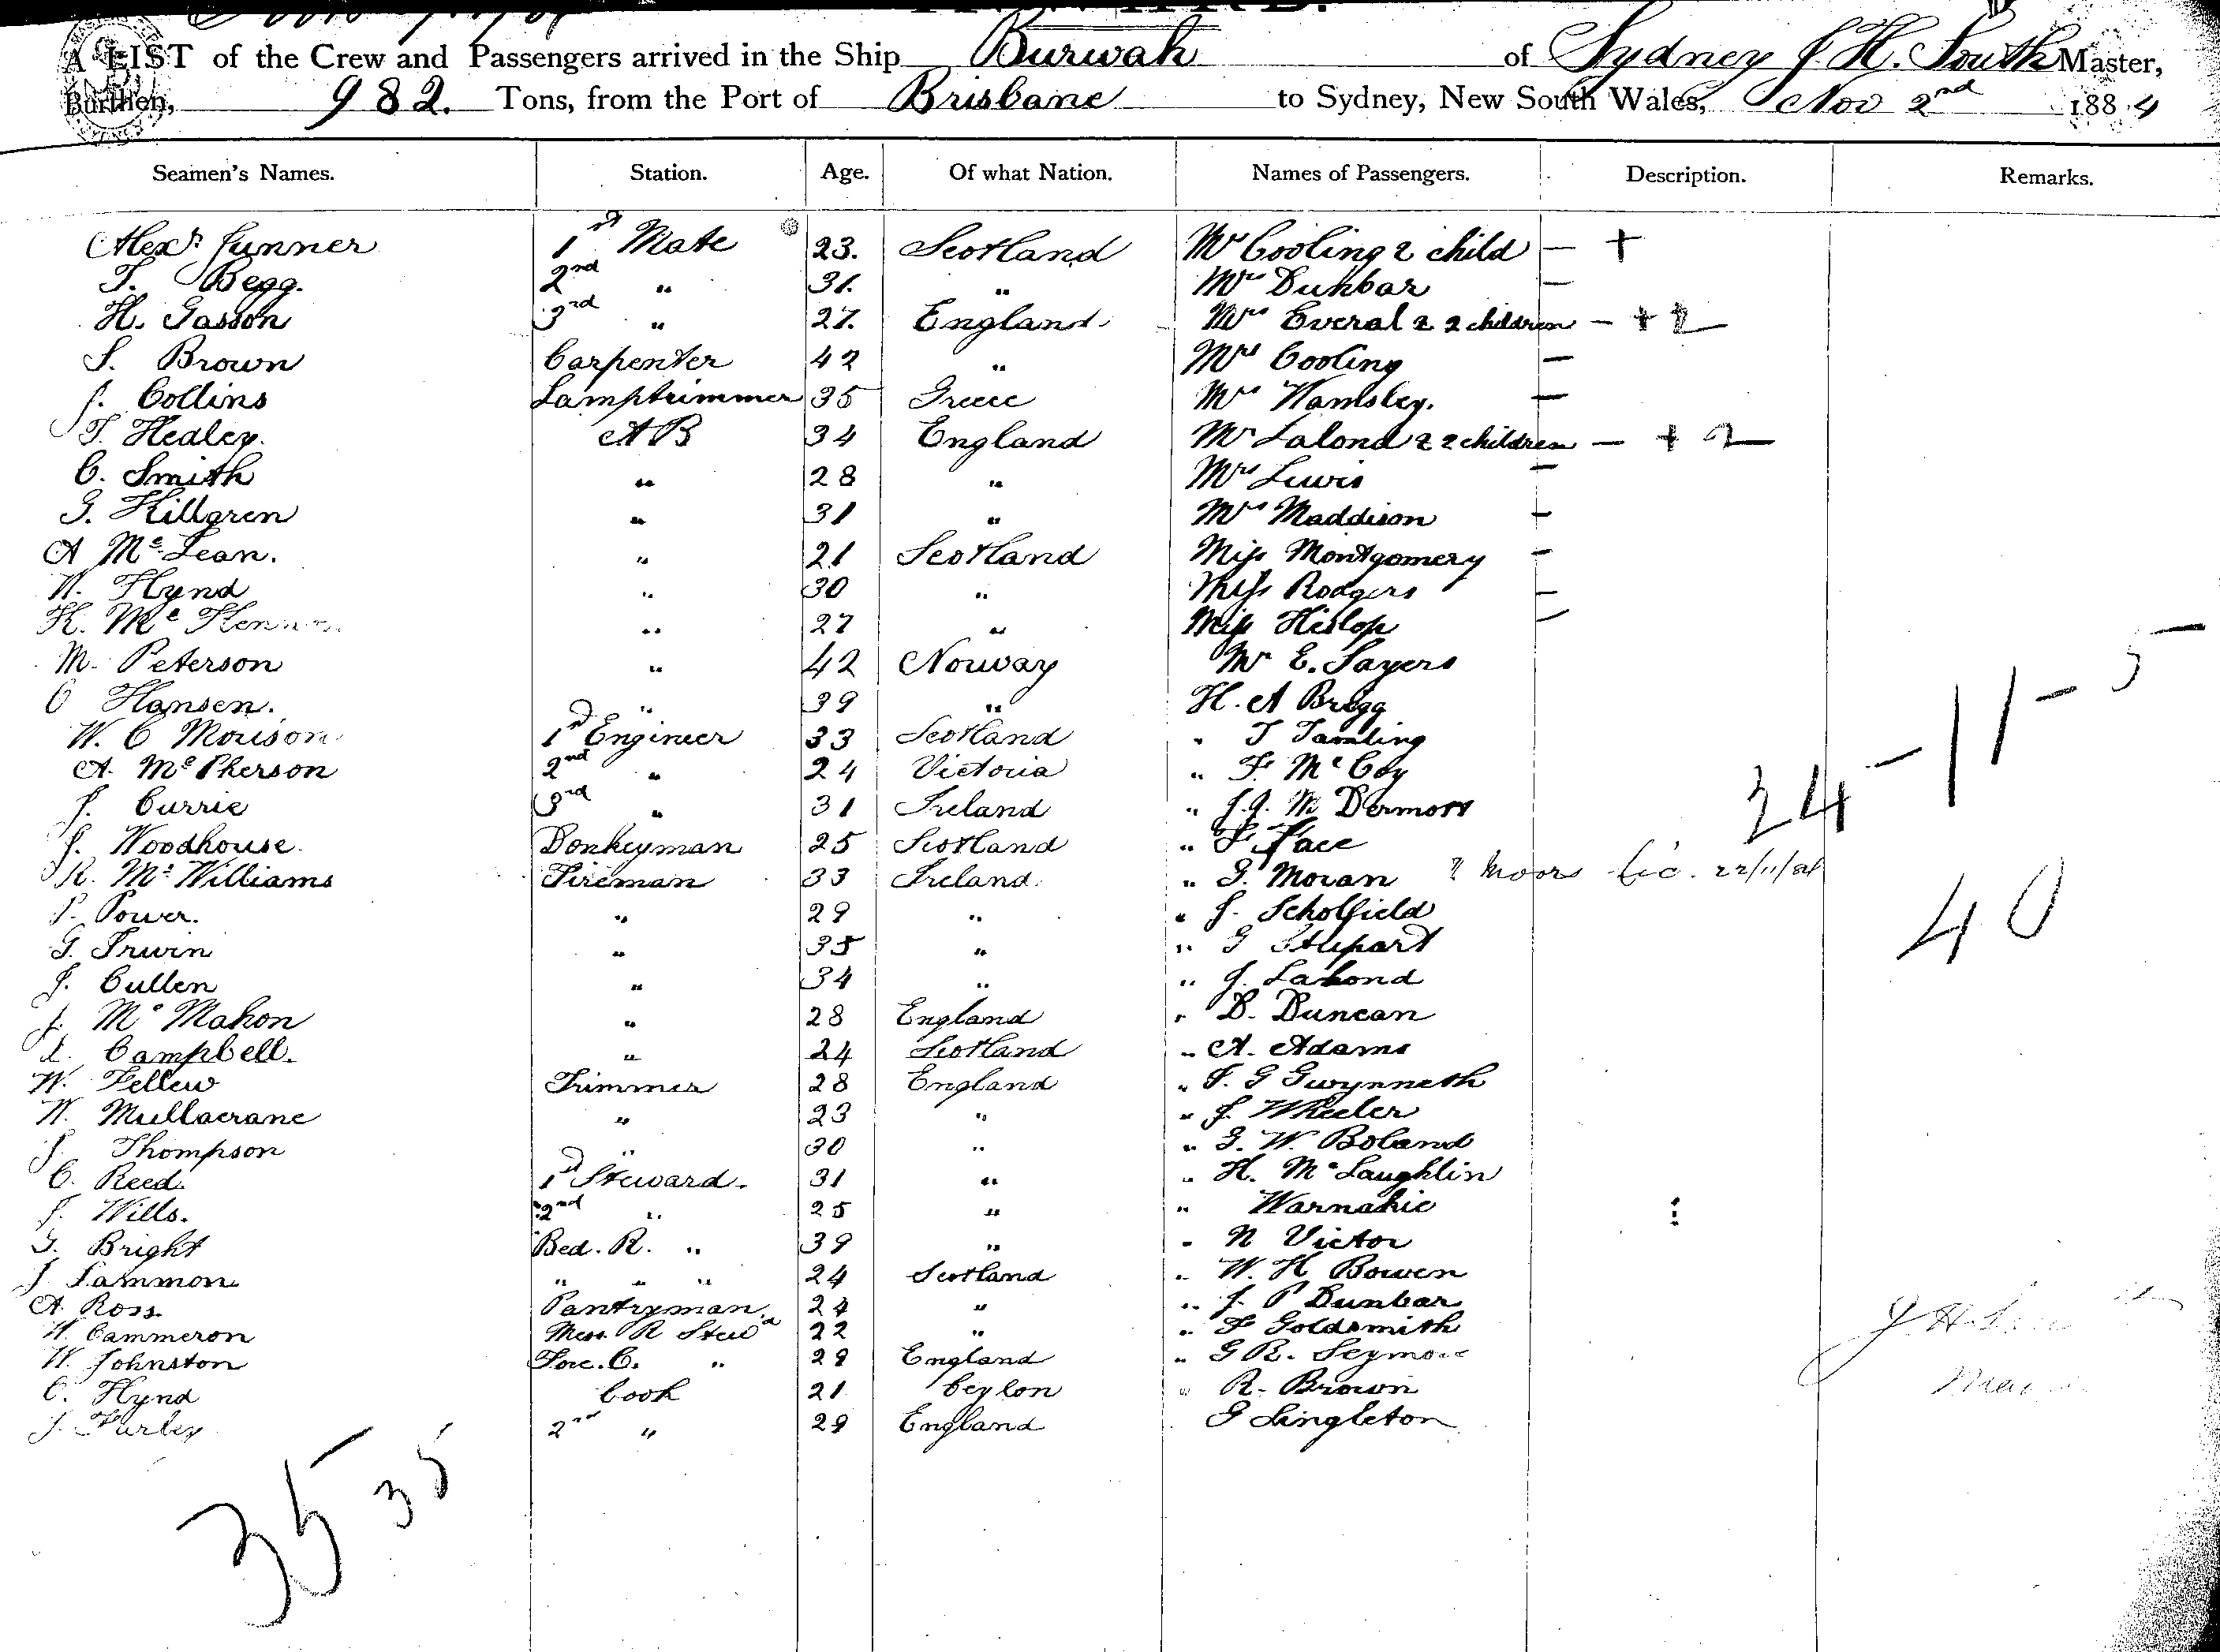 A LIST of the Crew and Passengers arrived in the Ship Burwah of Sydney J. H. South Master,
Burthen, 982. Tons, from the Port of Brisbane to Sydney, New South Wales, Nov 2nd 1884
Seamen's Names. Station. Age. Of what Nation. Names of Passengers. Description. Remarks.
Alexr. Junner 1st Mate 23. Scotland Mr Cooling & child — +
T. Begg. 2nd " 31. " Mrs Dunbar —
H. Gasson 3rd " 27. England Mrs Everal & 2 children — + 2
S. Brown Carpenter 42 " Mrs Cooling —
J. Collins Lamptrimmer 35 Greece Mrs Wamsley. —
T. Hedley. A B 34 England Mrs Lalond & 2 children — + 2
C. Smith " 28 " Mrs Lewis —
G. Hillgren " 31 " Mrs Maddison —
A McLean. " 21 Scotland Miss Montgomery —
W. Hynd " 30 " Miss Rodgers —
H. Mc " 27 " Miss Hislop —
M. Peterson " 42 Norway Mr E. Sayers
O Hansen. " 39 " H. A Brigg
W. C Morison 1st Engineer 33 Scotland " T Tamling
A. McPherson 2nd " 24 Victoria " F. McCoy
J. Currie 3rd " 31 Ireland " J.J. M Dermott
J. Woodhouse. Donkeyman 25 Scotland " F Face
R. McWilliams Fireman 33 Ireland. " G. Moran ? Moors 22/11/84
P. Power. " 29 " " J. Scholfield
G. Irwin " 35 " " G
J. Cullen " 34 " " J. Lalond
J. McMahon " 28 England " D. Duncan
D. Campbell. " 24 Scotland " A. Adams
W. Fellew Trimmer 28 England " T. G Gwynneth
W. Mullacrane " 23 " " J. Wheeler
J. Thompson " 30 " " G. W. Boland
C. Reed. 1st Steward. 31 " " H. McLaughlin
J. Wills. 2nd " 25 " " Warnakie
G. Bright Bed. R. " 39 " " N Victor
J Sammon " " " 24 Scotland " W. H Bowen
A. Ross. Pantryman. 24 " " J. P Dunbar
W. Cammeron Mess. R Stewd 22 " " F Goldsmith
W. Johnston Fore. C. " 29 England " G R. Seymore
C. Hynd Cook 21 Ceylon " R. Brown
J. Furley 2nd " 29 England G Singleton
24 - 11 - 5
40
J H
35 35